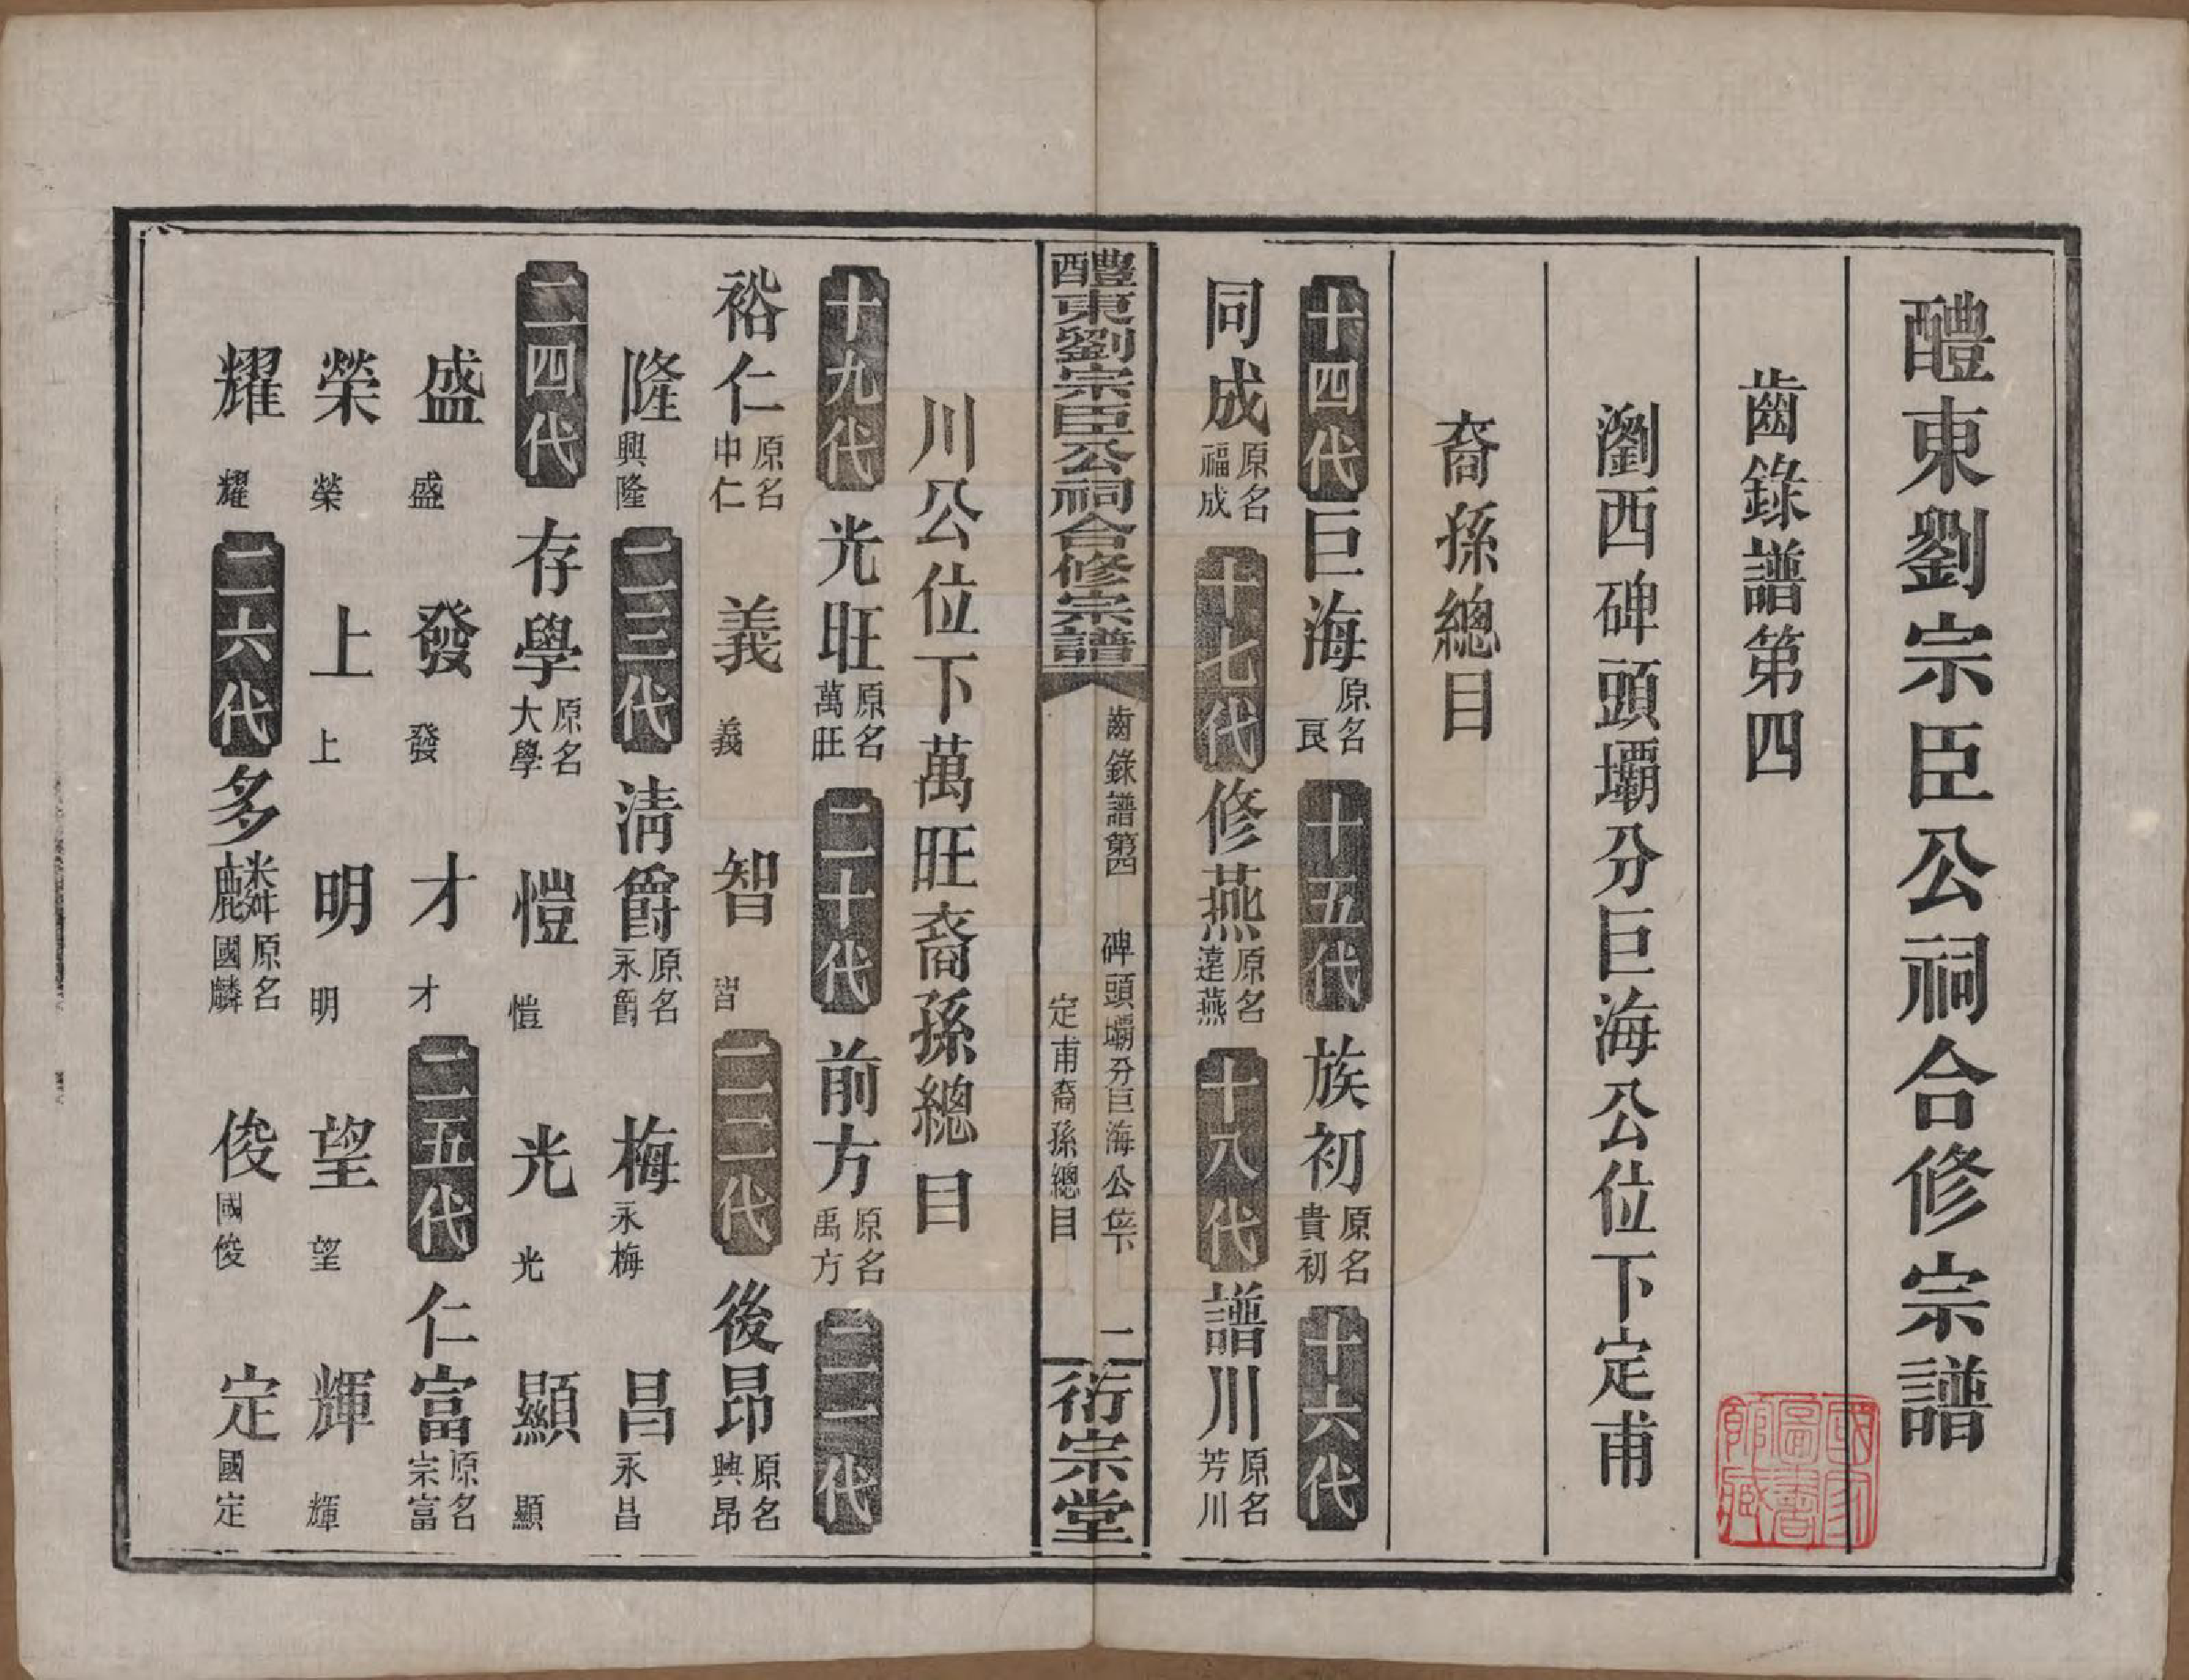 醴東劉宗臣公祠合修宗譜
齒錄譜第四
瀏西碑頭壩分巨海公位下定甫
裔孫總目
十四代 巨海 原名艮 十五代 族初 原名貴初 十六代
同成 原名福成 十七代 修燕 原名達燕 十八代 譜川 原名芳川
醴東劉宗臣公祠合修宗譜 齒錄譜第四 碑頭壩分巨海公位下定甫裔孫總目 一 衍宗堂
川公位下萬旺裔孫總目
十九代 光旺 原名萬旺 二十代 前方 原名禹方 二一代
裕仁 原名申仁 義 義 智 智 二二代 後昂 原名興昂
隆 興隆 二三代 清爵 原名永爵 梅 永梅 昌 永昌
二四代 存學 原名大學 愷 愷 光 光 顯 顯
盛 盛 發 發 才 才 二五代 仁富 原名宗富
榮 榮 上 上 明 明 望 望 輝 輝
耀 耀 二六代 多麟 原名國麟 俊 國俊 定 國定
國家圖書館藏